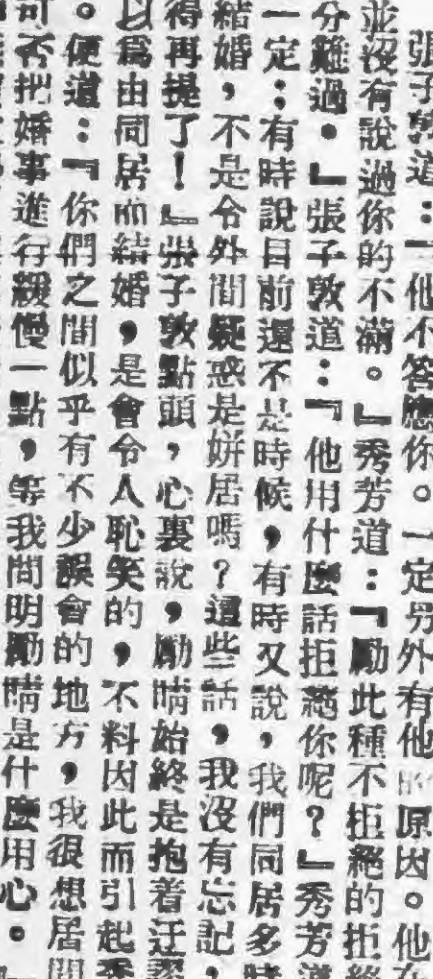 張子敦道：『他不答應你。一定另外有他的原因。他
並沒有說過你的不滿。』秀芳道：『勵此種不拒絕的拒絕
分難過。』張子敦道：『他用什麼話拒絕你呢？』秀芳道
一定；有時說目前還不是時候，有時又說，我們同居多時
結婚，不是令外間疑惑是姘居嗎？這些話，我沒有忘記，
得再提了！』張子敦點頭，心裏說，勵晴始終是抱着迂
以爲由同居而結婚，是會令人恥笑的，不料因此而引起秀
。便道：『你們之間似乎有不少誤會的地方，我很想居間
可否把婚事進行緩慢一點，等我問明勵晴是什麼用心。』